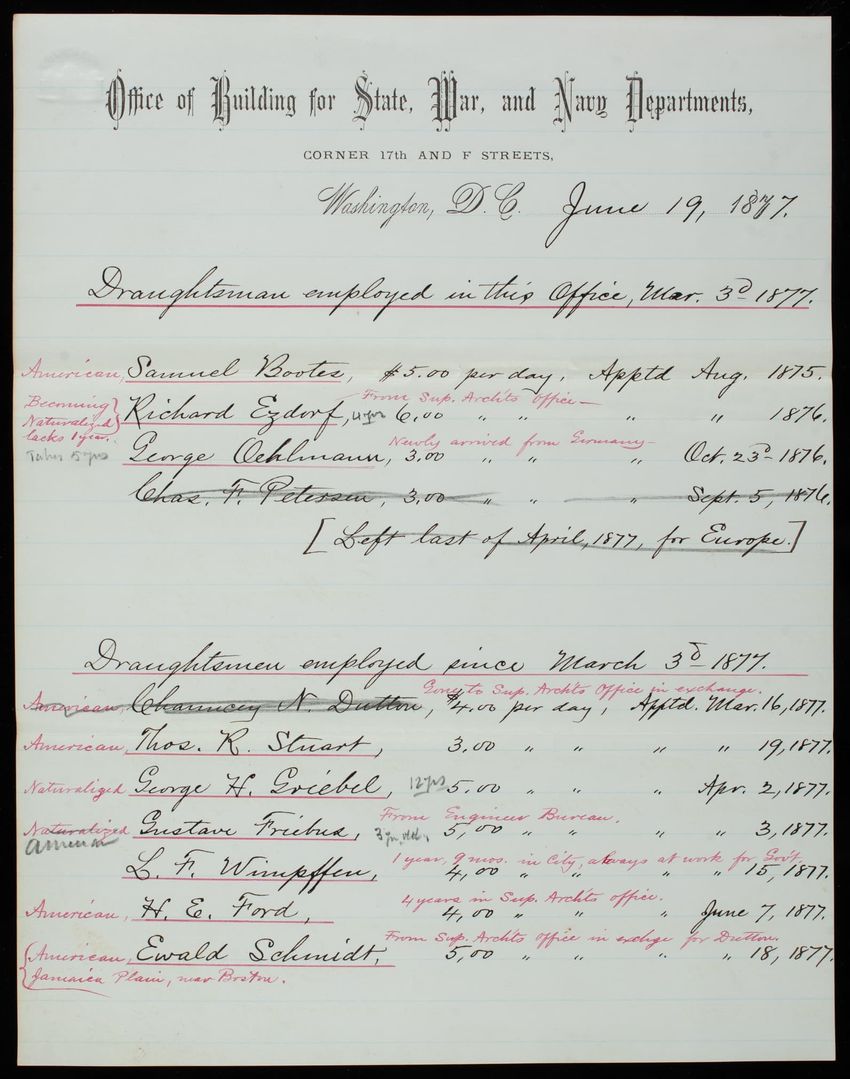 Office of Building for State, War, and Navy Departments,
CORNER 17th AND F STREETS,
Washington, D.C. June 19, 1877.
Draughtsman employed in this Office, Mar. 3d 1877.
American, Samuel Bootes, $5.00 per day, Apptd Aug. 1875.
From Sup. Archts Office—
Becoming Naturalized lacks 1 year. Richard Ezdorf, 4 yrs 6.00 " " " " 1876.
Newly arrived from Germany—
Takes 5 yrs George Oehlmann, 3.00 " " " Oct. 23d 1876.
Chas. F. Petersen, 3.00 " " " Sept. 5, 1876.
[Left last of April, 1877, for Europe.]
Draughtsmen employed since March 3d 1877.
Gone to Sup. Archts Office in exchange.
American, Chauncey N. Dutton, $4.00 per day, Apptd. Mar. 16, 1877.
American, Thos. R. Stuart, 3.00 " " " " 19, 1877.
Naturalized George H. Griebel, 12 yrs 5.00 " " " Apr. 2, 1877.
From Engineer Bureau.
Naturalized Gustave Friebus, 5,00 " " " " 3, 1877.
American
1 year, 9 mos. in City, always at work for Gov't.
L. F. Wimpffen, 4,00 " " " " 15, 1877.
4 years in Sup. Archts office.
American, H. E. Ford, 4,00 " " " June 7, 1877.
From Sup. Archts Office in exchge for Dutton.
American, Ewald Schmidt, 5,00 " " " " 18, 1877.
Jamaica Plain, near Boston.